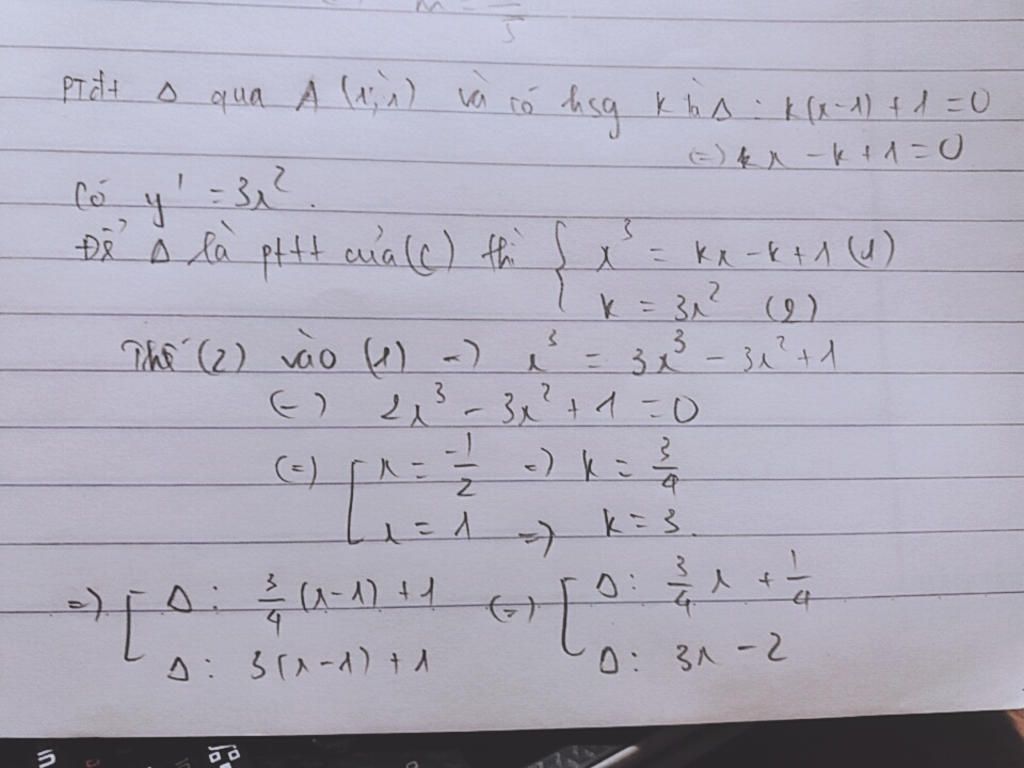 PTđt Δ qua A (1;1) và có hsg k là Δ : k(x-1) + 1 = 0
(=) kx - k + 1 = 0
Có y' = 3x².
Để Δ là pttt của (C) thì { x³ = kx - k + 1 (1)
k = 3x² (2)
Thế (2) vào (1) => x³ = 3x³ - 3x² + 1
(=) 2x³ - 3x² + 1 = 0
(=) [ x = -1/2 => k = 3/4
x = 1 => k = 3.
=) [ Δ : 3/4 (x-1) + 1 (=) [ Δ : 3/4 x + 1/4
Δ : 3(x-1) + 1 Δ : 3x - 2